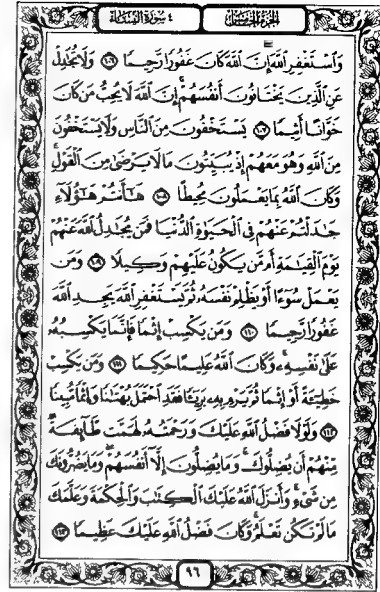 ٤ سورة النساء الجزء الخامس
وَٱسْتَغْفِرِ ٱللَّهَ إِنَّ ٱللَّهَ كَانَ غَفُورًا رَّحِيمًا ١٠٦ وَلَا تُجَٰدِلْ
عَنِ ٱلَّذِينَ يَخْتَانُونَ أَنفُسَهُمْ إِنَّ ٱللَّهَ لَا يُحِبُّ مَن كَانَ
خَوَّانًا أَثِيمًا ١٠٧ يَسْتَخْفُونَ مِنَ ٱلنَّاسِ وَلَا يَسْتَخْفُونَ
مِنَ ٱللَّهِ وَهُوَ مَعَهُمْ إِذْ يُبَيِّتُونَ مَا لَا يَرْضَىٰ مِنَ ٱلْقَوْلِ
وَكَانَ ٱللَّهُ بِمَا يَعْمَلُونَ مُحِيطًا ١٠٨ هَٰٓأَنتُمْ هَٰٓؤُلَآءِ
جَٰدَلْتُمْ عَنْهُمْ فِى ٱلْحَيَوٰةِ ٱلدُّنْيَا فَمَن يُجَٰدِلُ ٱللَّهَ عَنْهُمْ
يَوْمَ ٱلْقِيَٰمَةِ أَم مَّن يَكُونُ عَلَيْهِمْ وَكِيلًا ١٠٩ وَمَن
يَعْمَلْ سُوٓءًا أَوْ يَظْلِمْ نَفْسَهُۥ ثُمَّ يَسْتَغْفِرِ ٱللَّهَ يَجِدِ ٱللَّهَ
غَفُورًا رَّحِيمًا ١١٠ وَمَن يَكْسِبْ إِثْمًا فَإِنَّمَا يَكْسِبُهُۥ
عَلَىٰ نَفْسِهِۦ وَكَانَ ٱللَّهُ عَلِيمًا حَكِيمًا ١١١ وَمَن يَكْسِبْ
خَطِيٓـَٔةً أَوْ إِثْمًا ثُمَّ يَرْمِ بِهِۦ بَرِيٓـًٔا فَقَدِ ٱحْتَمَلَ بُهْتَٰنًا وَإِثْمًا مُّبِينًا
١١٢ وَلَوْلَا فَضْلُ ٱللَّهِ عَلَيْكَ وَرَحْمَتُهُۥ لَهَمَّت طَّآئِفَةٌ
مِّنْهُمْ أَن يُضِلُّوكَ وَمَا يُضِلُّونَ إِلَّآ أَنفُسَهُمْ وَمَا يَضُرُّونَكَ
مِن شَىْءٍ وَأَنزَلَ ٱللَّهُ عَلَيْكَ ٱلْكِتَٰبَ وَٱلْحِكْمَةَ وَعَلَّمَكَ
مَا لَمْ تَكُن تَعْلَمُ وَكَانَ فَضْلُ ٱللَّهِ عَلَيْكَ عَظِيمًا ١١٣
٩٦